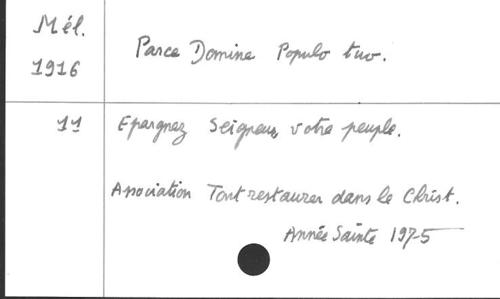 Mél.
1916
Parce Domine Populo tuo.
11
Epargnez Seigneur votre peuple.
Association Tout restaurer dans le Christ.
Année Sainte 1975